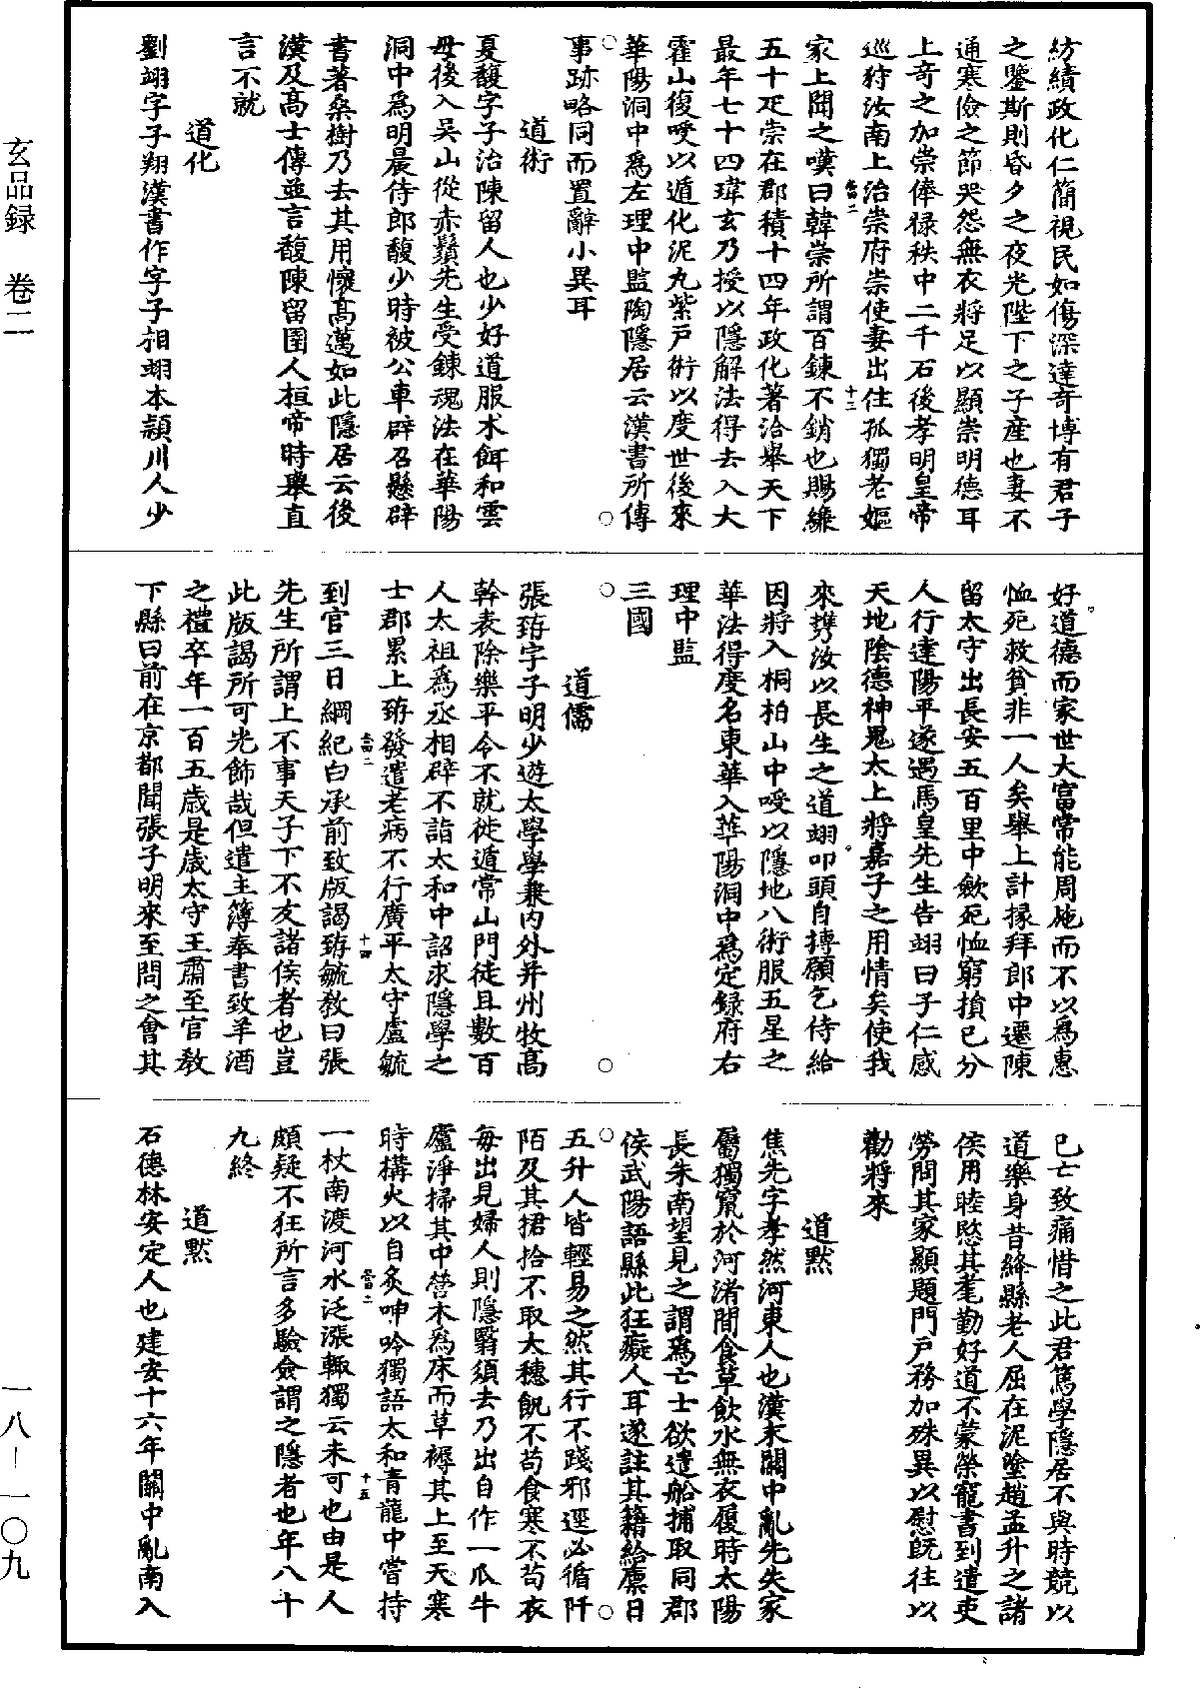 紡績政化仁簡視民如傷深達奇博有君子
之鑒斯則昏夕之夜光陛下之子產也妻不
通寒儉之節哭怨無衣將足以顯崇明德耳
上奇之加崇俸祿秩中二千石後孝明皇帝
巡狩汝南上治崇府崇使妻出住孤獨老嫗
家上聞之嘆曰韓崇所謂百鍊不銷也賜縑
五十疋崇在郡積十四年政化著洽舉天下
最年七十四瑋玄乃授以隱解法得去入大
霍山復受以遁化泥丸紫戶術以度世後來
華陽洞中為左理中監陶隱居云漢書所傳
事跡略同而置辭小異耳
道術
夏馥字子治陳留人也少好道服朮餌和雲
母後入吳山從赤鬚先生受鍊魂法在華陽
洞中為明晨侍郎馥少時被公車辟召懸辟
書著桑樹乃去其用懷高邁如此隱居云後
漢及高士傳並言馥陳留圉人桓帝時舉直
言不就
道化
劉翊字子翔漢書作字子相翊本潁川人少
好道德而家世大富常能周施而不以為惠
恤死救貧非一人矣舉上計掾拜郎中遷陳
留太守出長安五百里中斂死恤窮損己分
人行達陽平遂遇馬皇先生告翊曰子仁感
天地陰德神鬼太上將嘉子之用情矣使我
來攜汝以長生之道翊叩頭自摶願乞侍給
因將入桐柏山中受以隱地八術服五星之
華法得度名東華入華陽洞中為定錄府右
理中監
三國
道儒
張臶字子明少遊太學學兼內外并州牧高
幹表除樂平令不就徙遁常山門徒且數百
人太祖為丞相辟不詣太和中詔求隱學之
士郡累上臶發遣老病不行廣平太守盧毓
到官三日綱紀白承前致版謁臶毓教曰張
先生所謂上不事天子下不友諸侯者也豈
此版謁所可光飾哉但遣主簿奉書致羊酒
之禮卒年一百五歲是歲太守王肅至官教
下縣曰前在京都聞張子明來至問之會其
已亡致痛惜之此君篤學隱居不與時競以
道樂身昔絳縣老人屈在泥塗趙孟升之諸
侯用睦愍其耄勤好道不蒙榮寵書到遣吏
勞問其家顯題門戶務加殊異以慰既往以
勸將來
道默
焦先字孝然河東人也漢末關中亂先失家
屬獨竄於河渚間食草飲水無衣履時太陽
長朱南望見之謂為亡士欲遣船捕取同郡
侯武陽語縣此狂癡人耳遂註其籍給廩日
五升人皆輕易之然其行不踐邪逕必循阡
陌及其捃拾不取大穗飢不苟食寒不苟衣
每出見婦人則隱翳須去乃出自作一瓜牛
廬淨掃其中營木為床而草褥其上至天寒
時構火以自炙呻吟獨語太和青龍中嘗持
一杖南渡河水泛漲輒獨云未可也由是人
頗疑不狂所言多驗僉謂之隱者也年八十
九終
道默
石德林安定人也建安十六年關中亂南入
玄品録　卷二
一八—一〇九